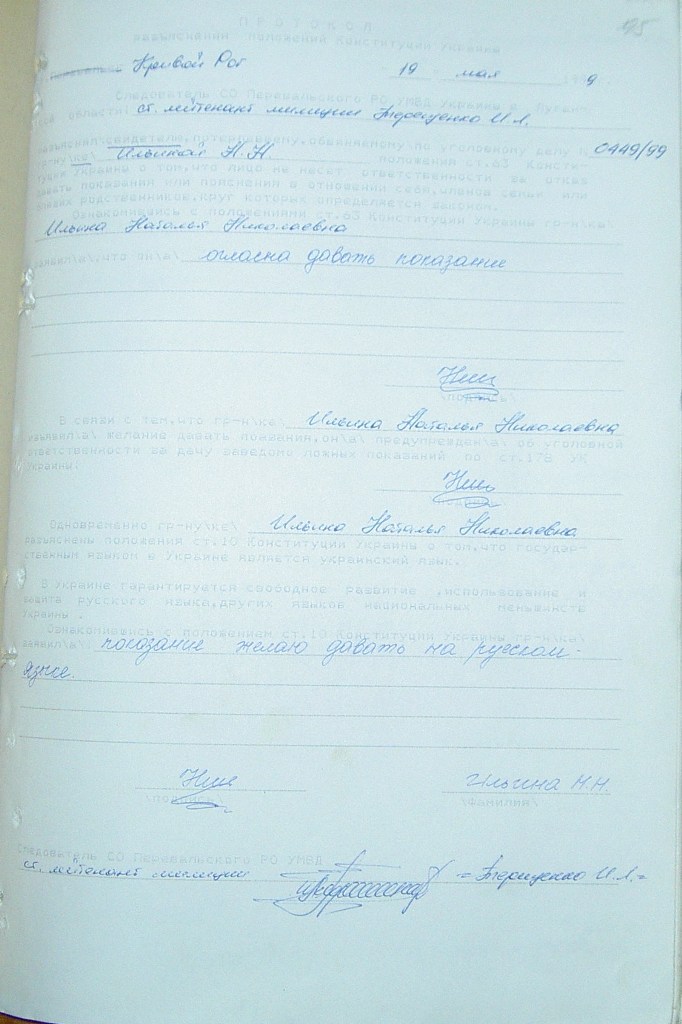 75
П Р О Т О К О Л
разъяснения положений Конституции Украины
Кривой Рог 19 мая 199 9
Следователь СО Перевальского РО УМВД Украины в Луган-
ской области ст. лейтенант милиции Терещенко И.Л.
разъяснил свидетелю, потерпевшему, обвиняемому по уголовному делу N 0449/99
гр-ну\ке\ Ильиной Н.Н. положения ст.63 Консти-
туции Украины о том, что лицо не несет ответственности за отказ
давать показания или пояснения в отношении себя, членов семьи или
близких родственников, круг которых определяется законом.
Ознакомившись с положениями ст.63 Конституции Украины гр-н\ка\
Ильина Наталья Николаевна
заявил\а\, что он\а\ огласна давать показание
\подпись\
В связи с тем, что гр-н\ка\ Ильина Наталья Николаевна
изъявил\а\ желание давать показания, он\а\ предупрежден\а\ об уголовной
ответственности за дачу заведомо ложных показаний по ст.178 УК
Украины.
\подпись\
Одновременно гр-ну\ке\ Ильина Наталья Николаевна
разъяснены положения ст.10 Конституции Украины о том, что государ-
ственным языком в Украине является украинский язык.
В Украине гарантируется свободное развитие ,использование и
защита русского языка, других языков национальных меньшинств
Украины .
Ознакомившись с положением ст.10 Конституции Украины гр-н\ка\
заявил\а\ показание желаю давать на русском
языке.
Ильина Н.Н.
\подпись\ \фамилия\
Следователь СО Перевальского РО УМВД
ст. лейтенант милиции =Терещенко И.Л.=